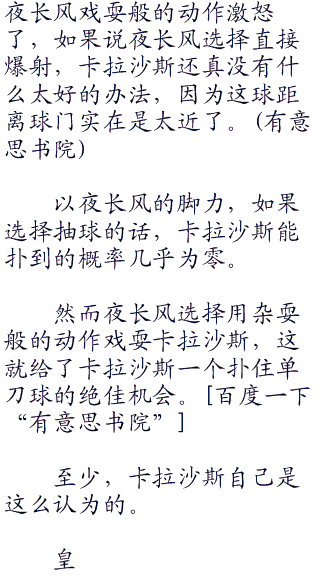 夜长风戏耍般的动作激怒
了，如果说夜长风选择直接
爆射，卡拉沙斯还真没有什
么太好的办法，因为这球距
离球门实在是太近了。(有意
思书院)
以夜长风的脚力，如果
选择抽球的话，卡拉沙斯能
扑到的概率几乎为零。
然而夜长风选择用杂耍
般的动作戏耍卡拉沙斯，这
就给了卡拉沙斯一个扑住单
刀球的绝佳机会。[百度一下
“有意思书院”]
至少，卡拉沙斯自己是
这么认为的。
皇